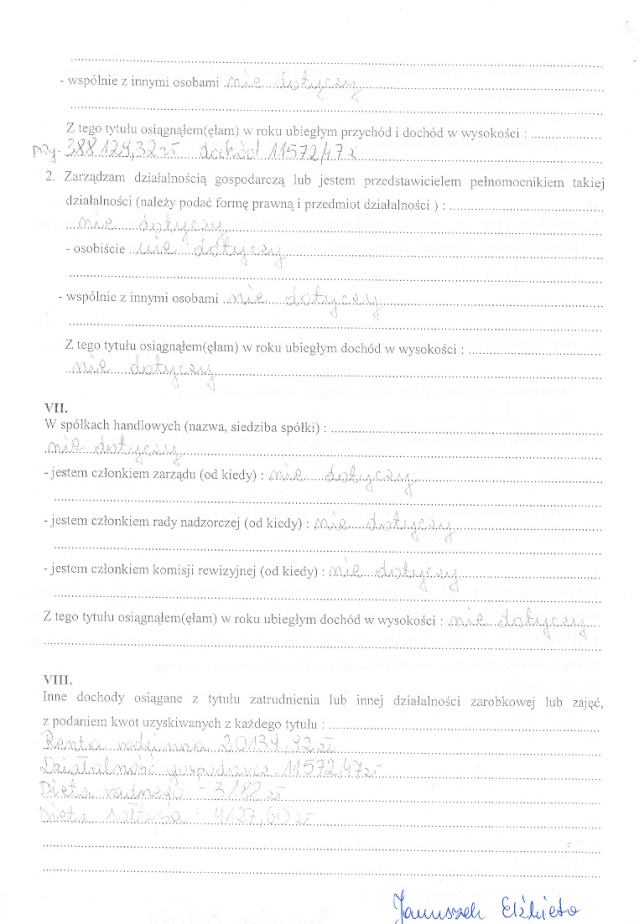 - wspólnie z innymi osobami nie dotyczy
Z tego tytułu osiągnąłem(ęłam) w roku ubiegłym przychód i dochód w wysokości :
przy- 388 129,32 zł dochód 11572,47 zł
2. Zarządzam działalnością gospodarczą lub jestem przedstawicielem pełnomocnikiem takiej
działalności (należy podać formę prawną i przedmiot działalności ) :
nie dotyczy
- osobiście nie dotyczy
- wspólnie z innymi osobami nie dotyczy
Z tego tytułu osiągnąłem(ęłam) w roku ubiegłym dochód w wysokości :
nie dotyczy
VII.
W spółkach handlowych (nazwa, siedziba spółki) :
nie dotyczy
- jestem członkiem zarządu (od kiedy) : nie dotyczy
- jestem członkiem rady nadzorczej (od kiedy) : nie dotyczy
- jestem członkiem komisji rewizyjnej (od kiedy) : nie dotyczy
Z tego tytułu osiągnąłem(ęłam) w roku ubiegłym dochód w wysokości : nie dotyczy
VIII.
Inne dochody osiągane z tytułu zatrudnienia lub innej działalności zarobkowej lub zajęć,
z podaniem kwot uzyskiwanych z każdego tytułu :
Renta rodzinna 20139,92 zł
Działalność gospodarcza 11572,47 zł
Dieta radnego - 3182 zł
Dieta sołtysa - 4127,60 zł
Januszek Elżbieta